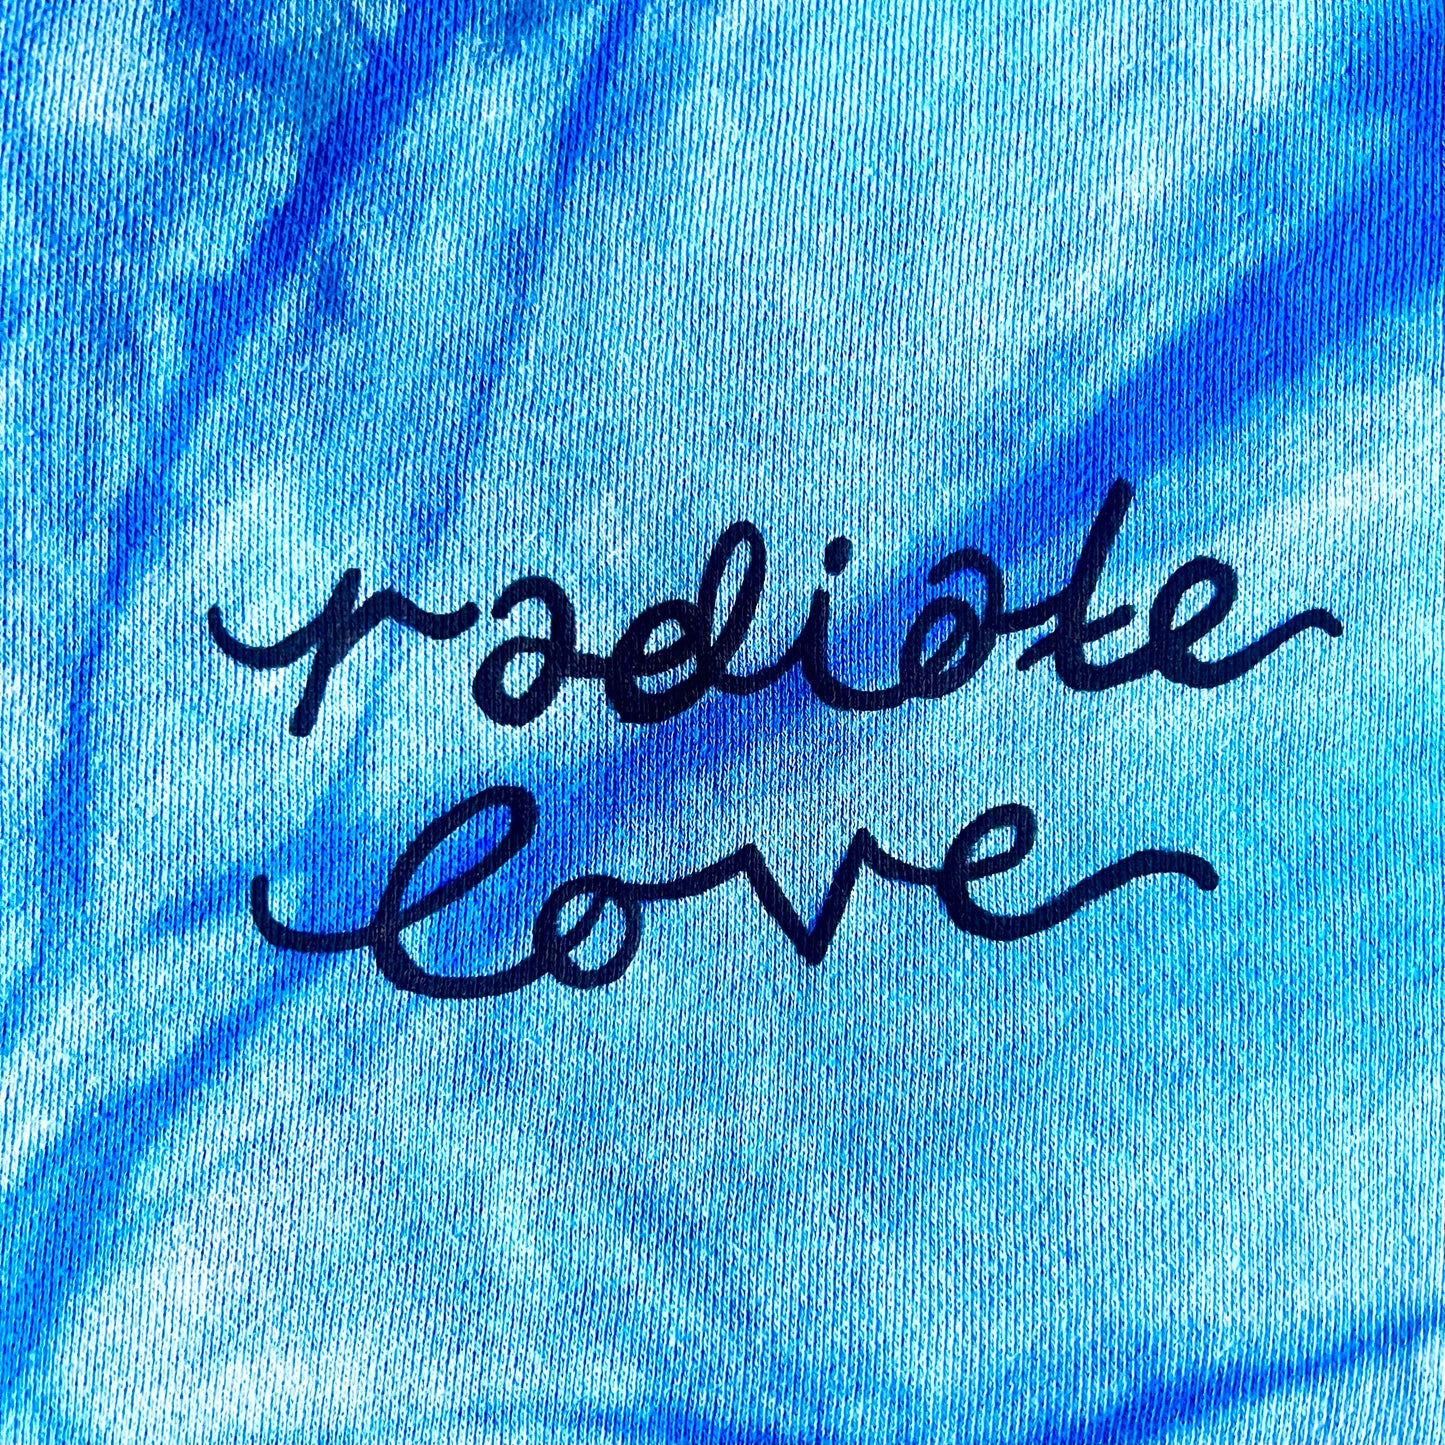 radiate
love